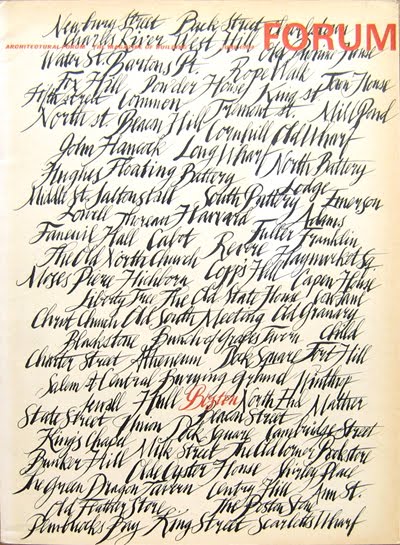 FORUM
ARCHITECTURAL FORUM THE MAGAZINE OF BUILDING
Newbury Street Back Street
Charles River East Inn
Water St. Bartons Pt. Rope Walk
Fox Hill Powder House King St. Town House
Fifth Street Common Tremont St. Mill Pond
North St. Beacon Hill Cornhill Old Wharf
John Hancock Long Wharf North Battery
Hughes Floating Battery Lodge
Middle St. Saltonstall South Battery Emerson
Lowell Thoreau Harvard Adams
Faneuil Hall Cabot Fuller Franklin
The Old North Church Revere Haymarket Sq
Moses Pierc Hichborn Copp's Hill Capen House
Liberty Tree The Old State House
Christ Church Old South Meeting Old Granary
Blackstone Bunch of Grapes Tavern Child
Charter Street Atheneum Dock Square Fort Hill
Salem & Central Burying Ground Winthrop
Sewall Hull Boston North End Mather
State Street Union Beacon Street
King's Chapel Dock Square Cambridge Street
Bunker Hill Milk Street The Old Corner Bookstore
Olde Oyster House Shirley Place
The Green Dragon Tavern Centry Hill Ann St.
Old Feather Store The Boston Stone
Bay King Street Scarletts Wharf